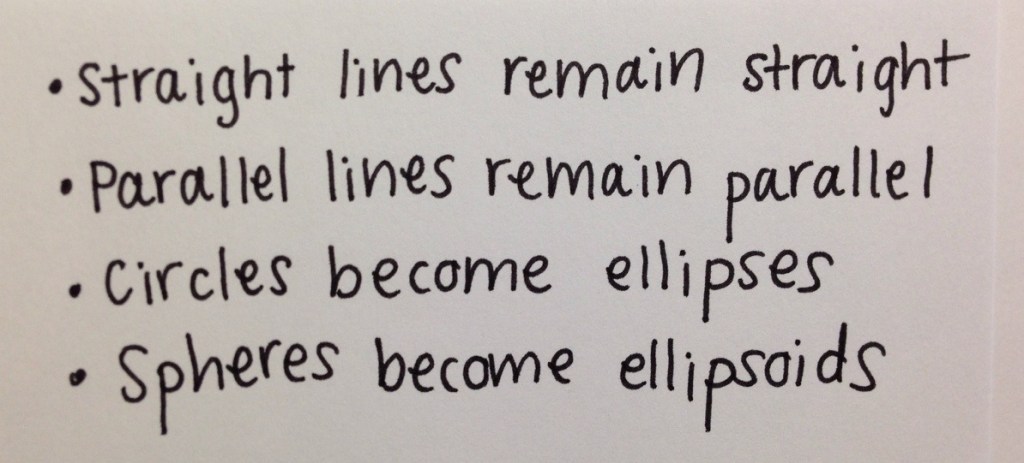 • Straight lines remain straight
• Parallel lines remain parallel
• Circles become ellipses
• Spheres become ellipsoids